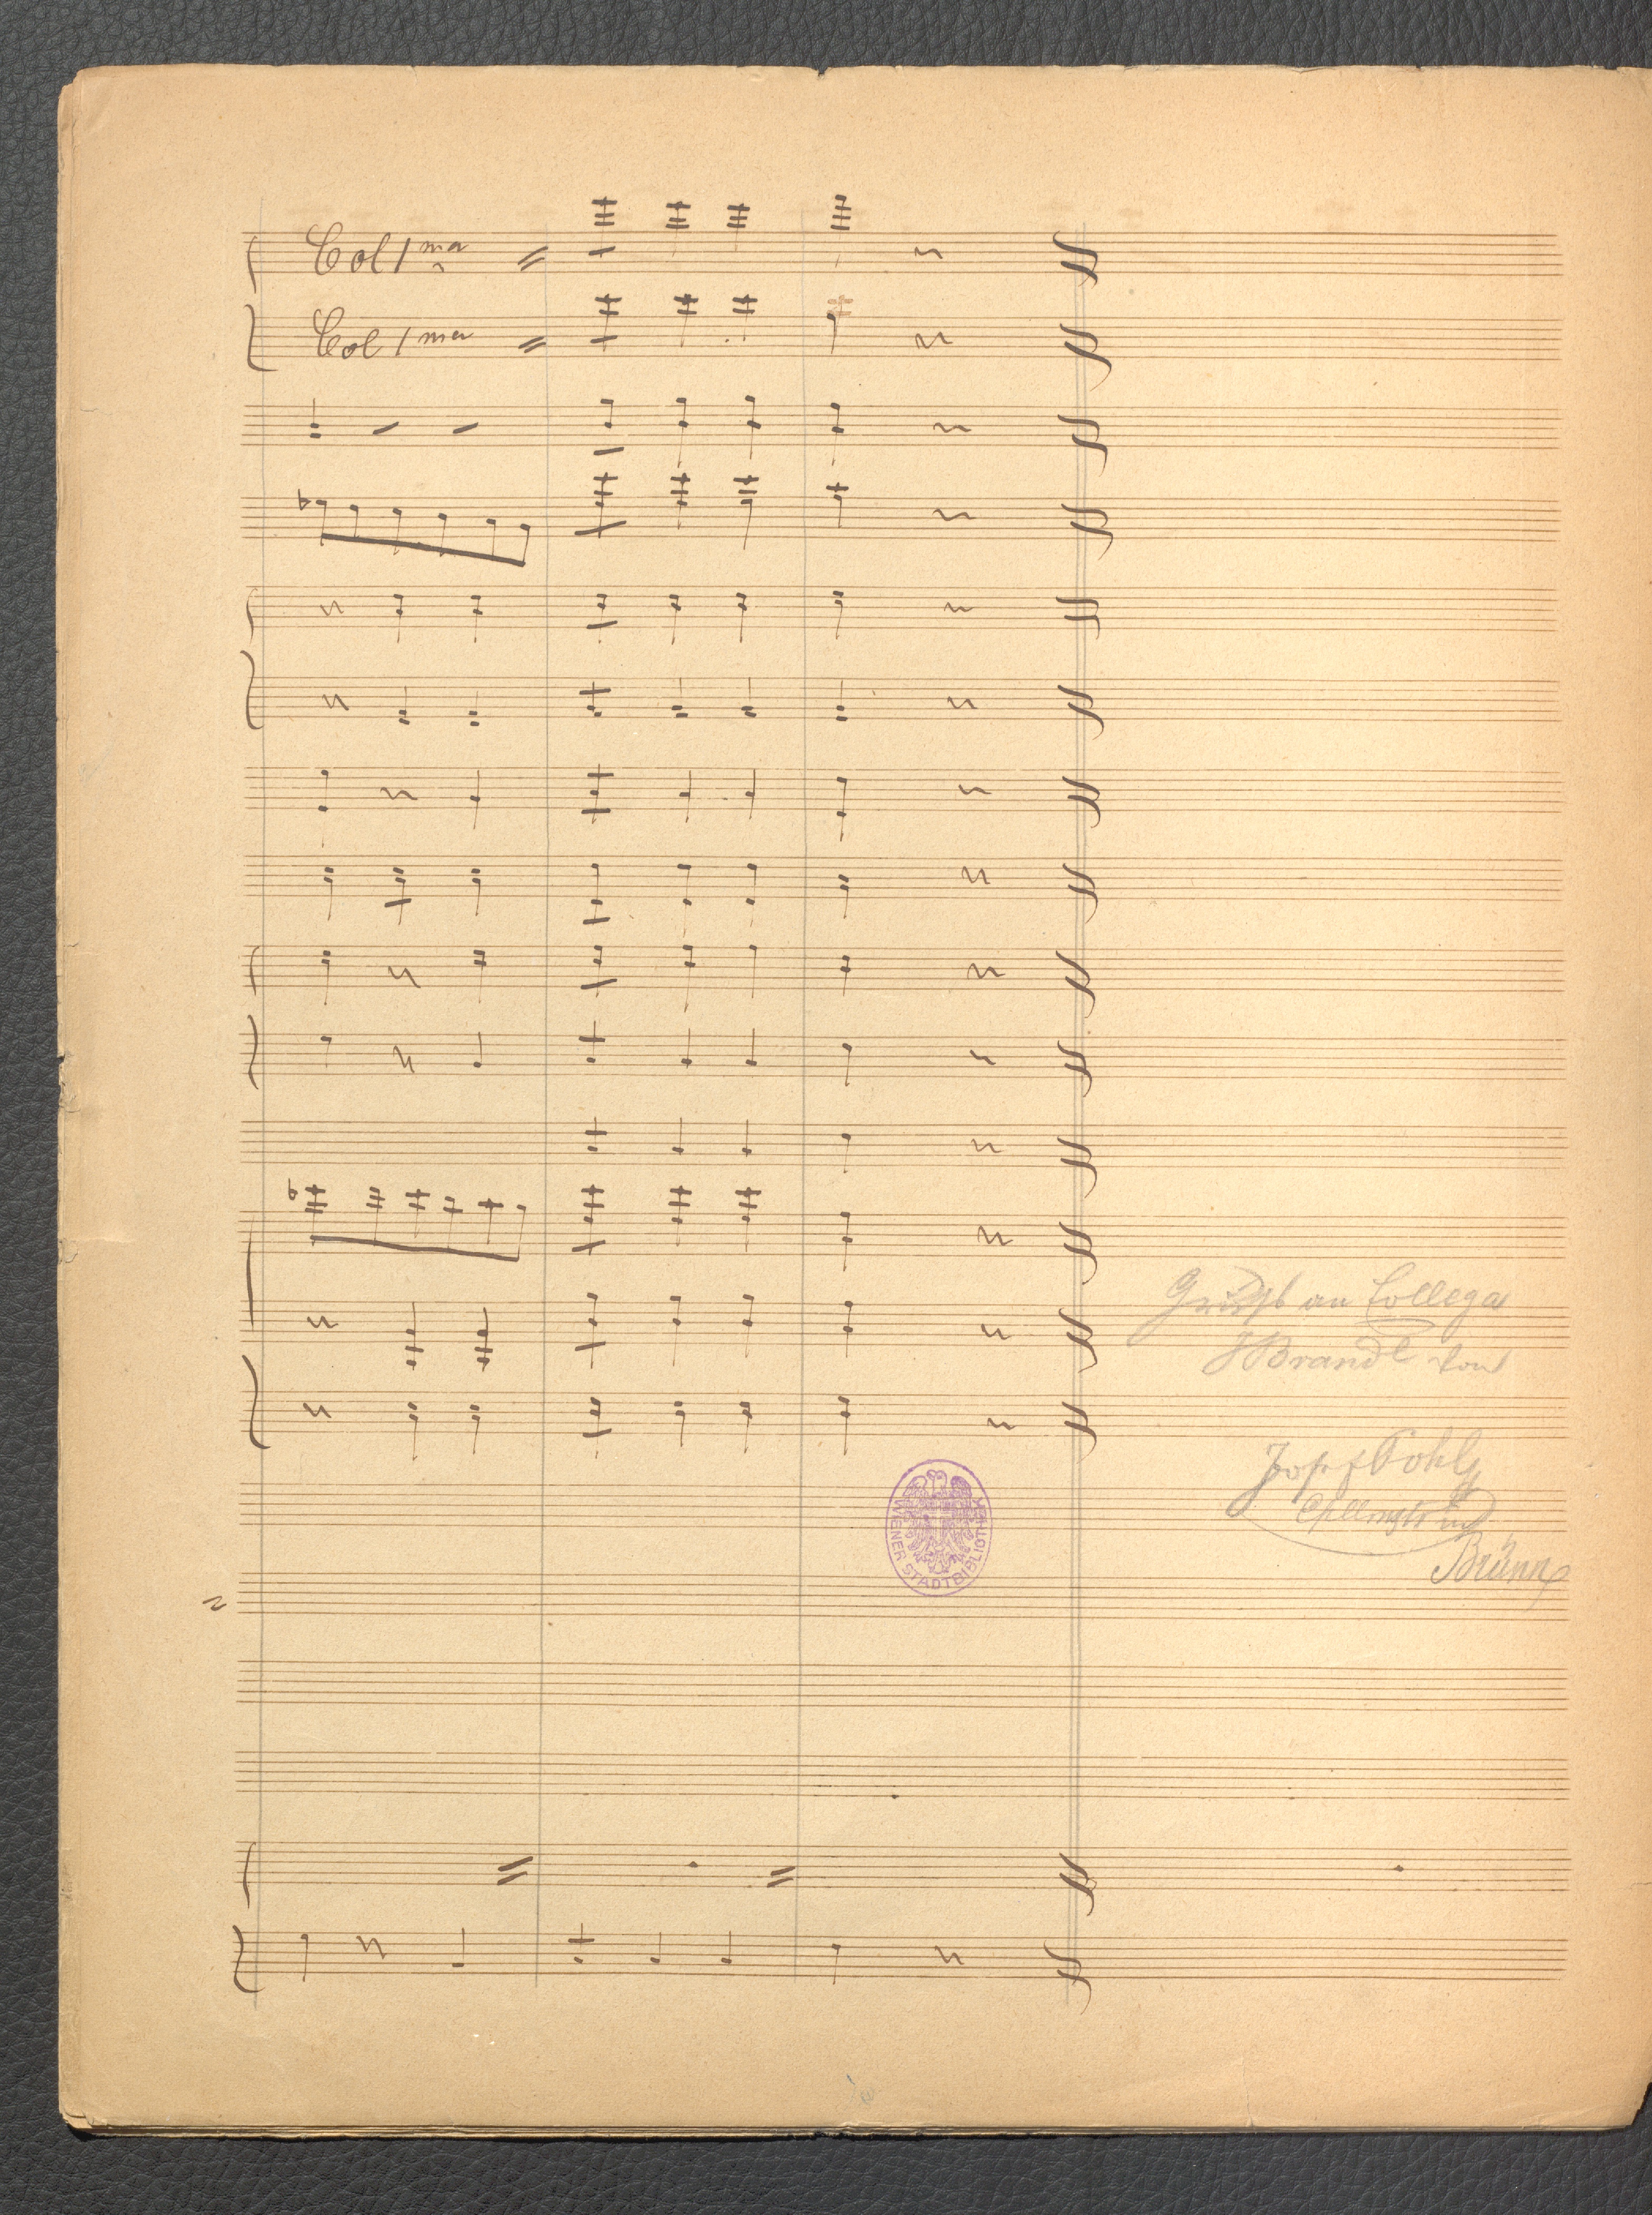 Col 1ma
Col 1ma
Gruß an Collega
J Brandl von
Josef Pohl
in
Brünn
WIENER STADTBIBLIOTHEK